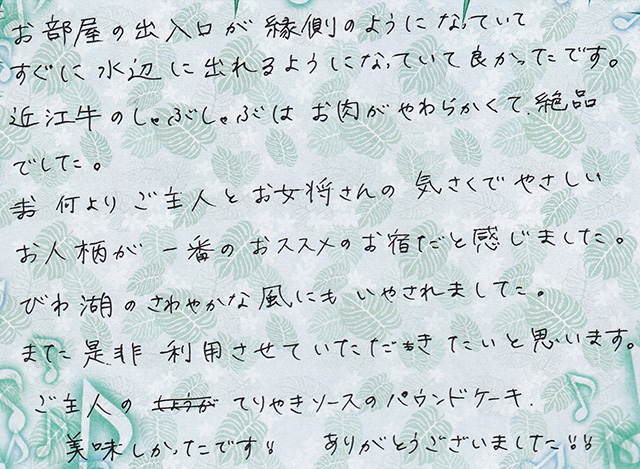 お部屋の出入口が縁側のようになっていて
すぐに水辺に出れるようになっていて良かったです。
近江牛のしゃぶしゃぶはお肉がやわらかくて、絶品
でした。
何よりご主人とお女将さんの気さくでやさしい
お人柄が一番のおススメのお宿だと感じました。
びわ湖のさわやかな風にもいやされました。
また是非利用させていただきたいと思います。
ご主人の てりやきソースのパウンドケーキ.
美味しかったです!! ありがとうございました!!